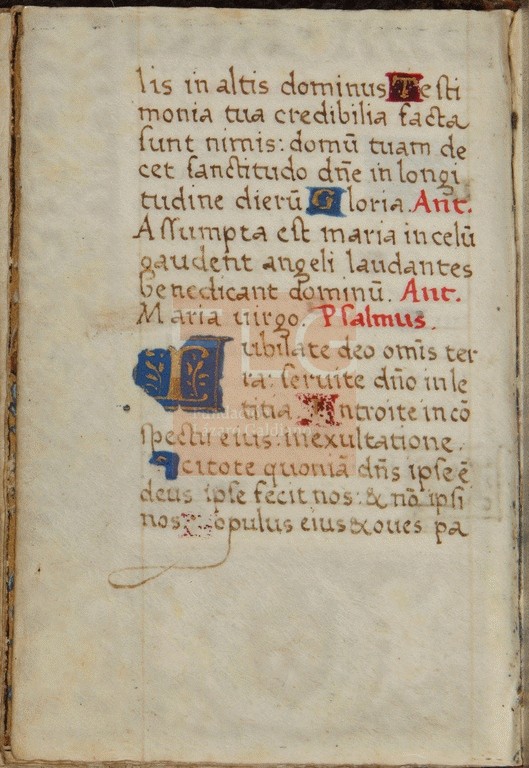 lis in altis dominus Testi
monia tua credibilia facta
sunt nimis: domū tuam de
cet sanctitudo dn̄e in longi
tudine dierū. Gloria. Ant.
Assumpta est maria in celū
gaudent angeli laudantes
benedicant dominū. Ant.
Maria uirgo. Psalmus.
Iubilate deo omīs ter
ra: seruite dn̄o in le
titia. Introite in cō
spectu eius: in exultatione.
Scitote quoniā dn̄s ipse ē
deus ipse fecit nos: & nō ipsi
nos Populus eius & oues pa
FLG
Fundación
Lázaro Galdiano